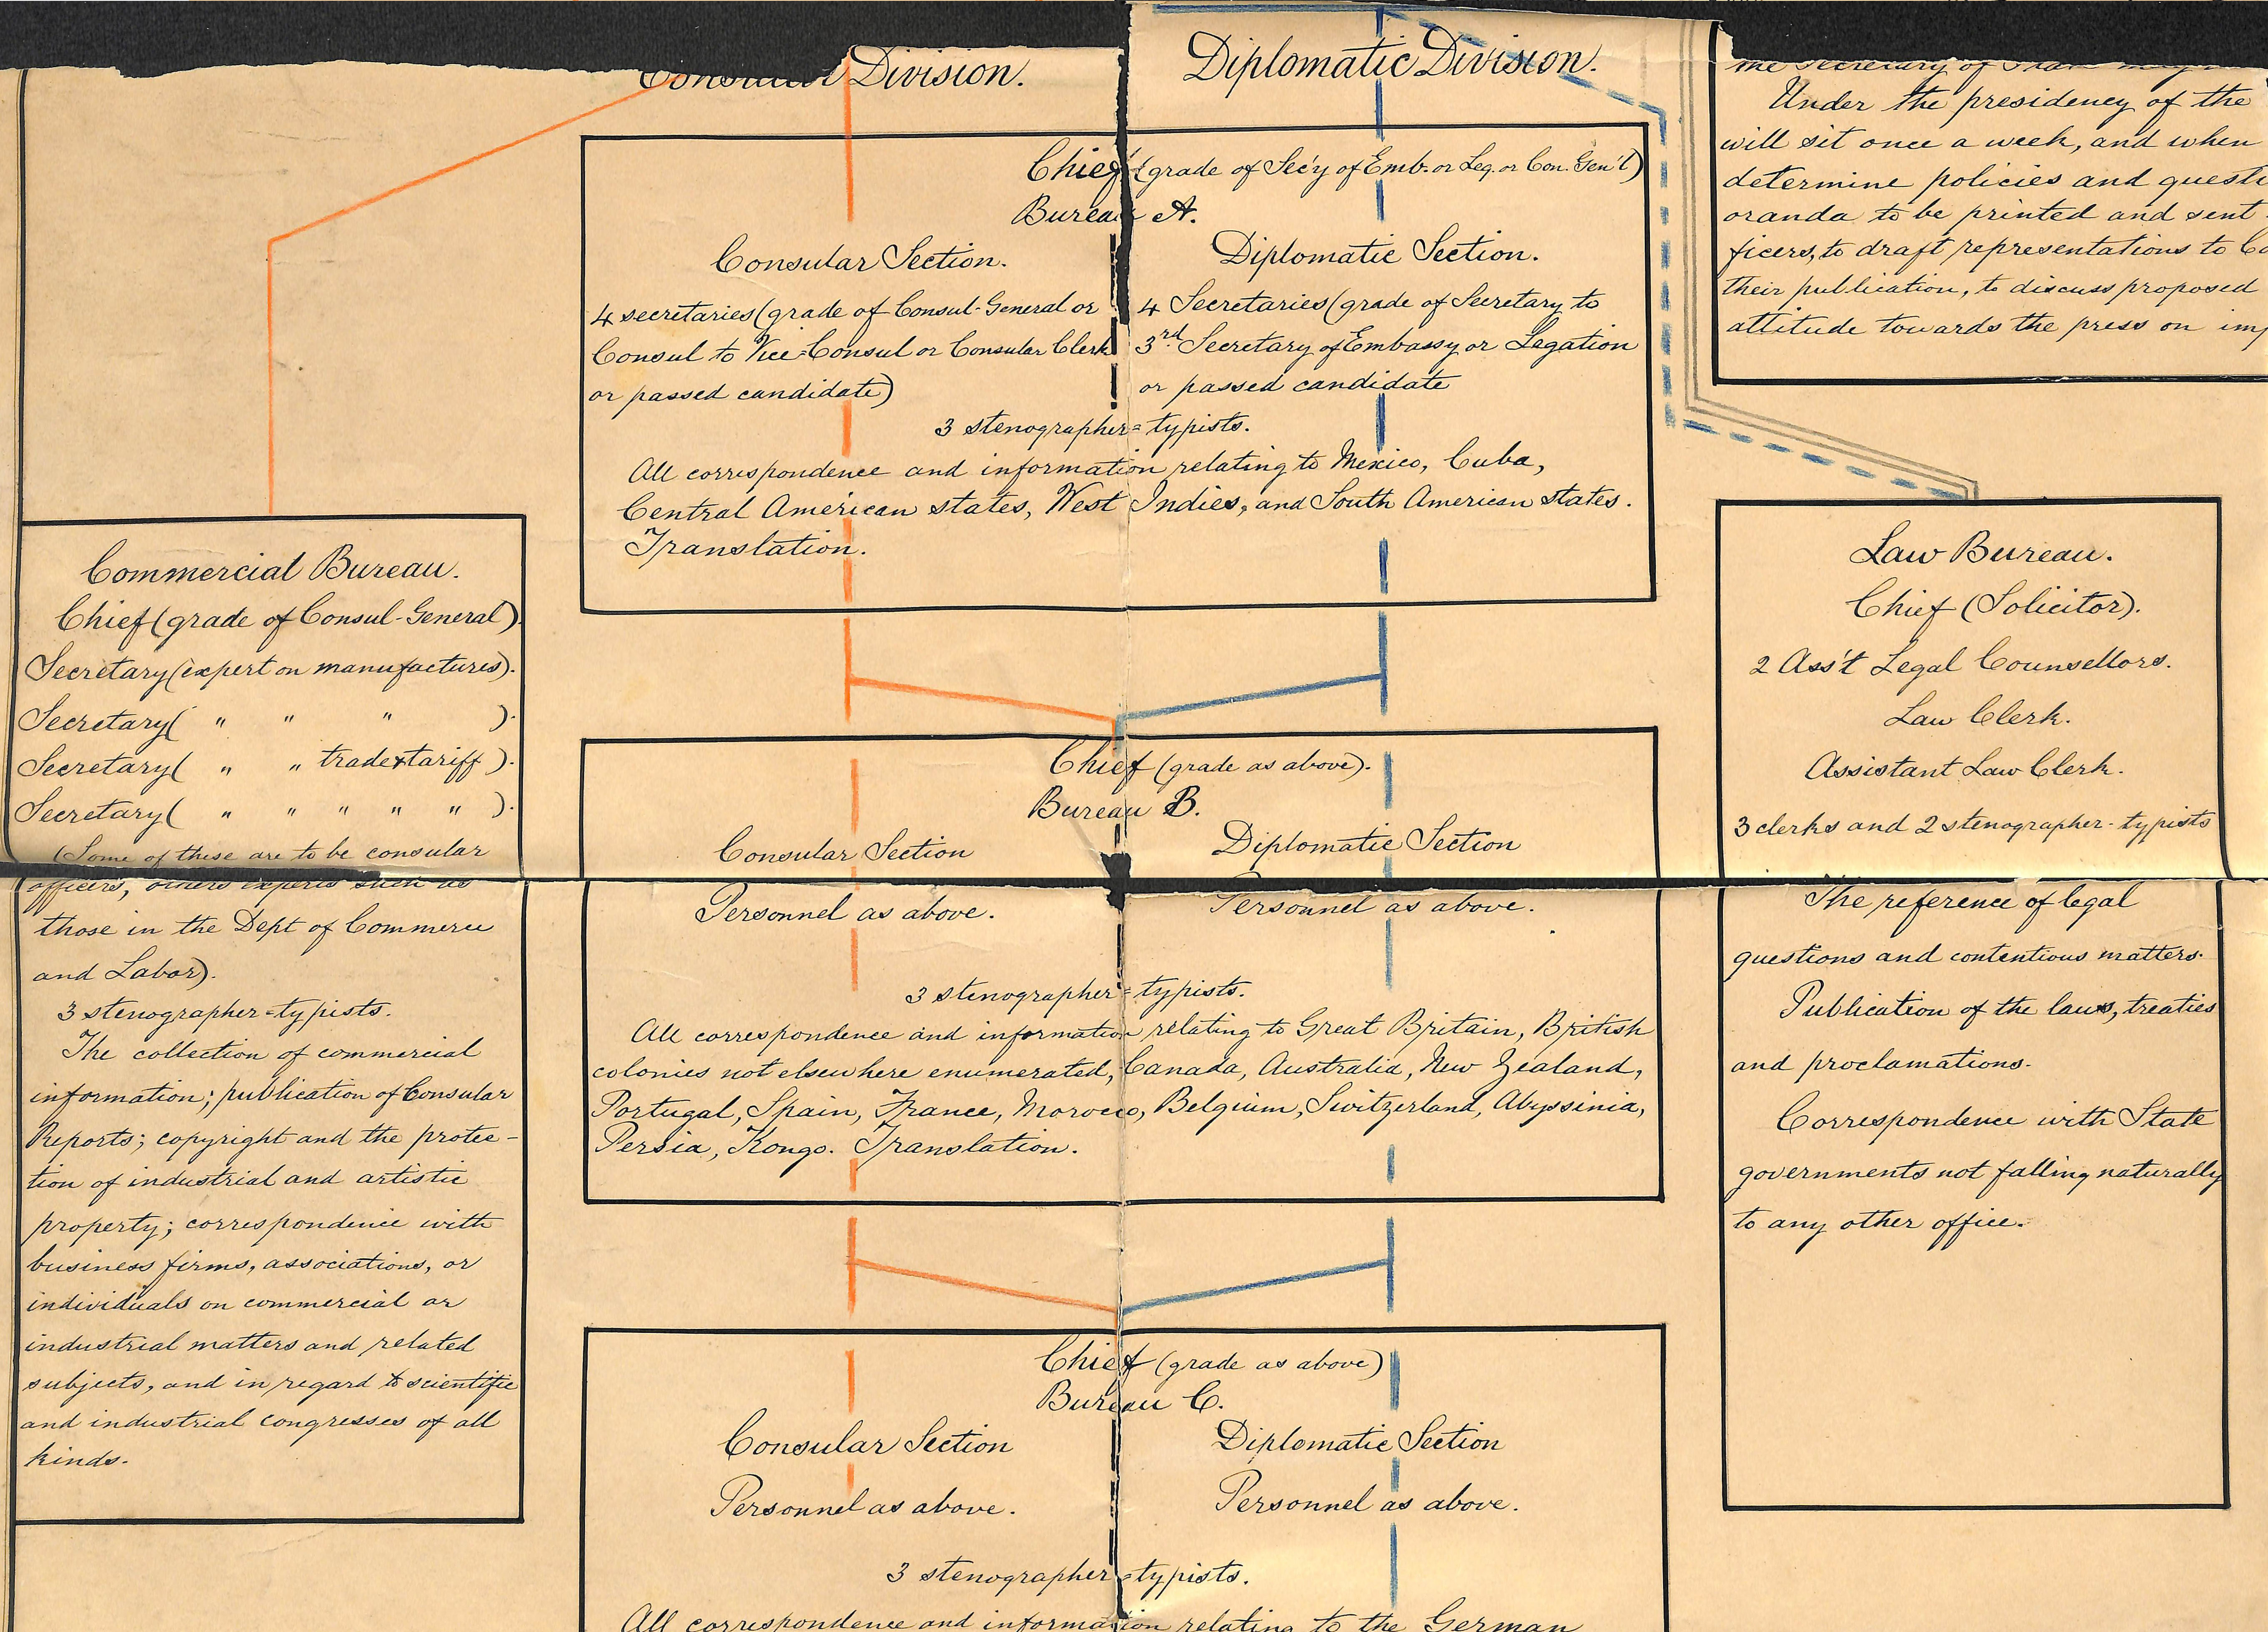 Consular Division.
Diplomatic Division.
Chief (grade of Sec'y of Emb. or Leg. or Con. Gen'l)
Bureau A.
Consular Section.
4 secretaries (grade of Consul-General or
Consul to Vice-Consul or Consular Clerk
or passed candidate)
Diplomatic Section.
4 Secretaries (grade of Secretary to
3rd Secretary of Embassy or Legation
or passed candidate
3 stenographer=typists.
All correspondence and information relating to Mexico, Cuba,
Central American states, West Indies, and South American states.
Translation.
the Secretary of State may
Under the presidency of the
will sit once a week, and when
determine policies and questi
oranda to be printed and sent
ficers, to draft representations to Co
their publication, to discuss proposed
attitude towards the press on imp
Commercial Bureau.
Chief (grade of Consul-General).
Secretary (expert on manufactures).
Secretary ( " " " ).
Secretary ( " " trade & tariff ).
Secretary ( " " " " " ).
(Some of these are to be consular
officers, others experts such as
those in the Dept of Commerce
and Labor).
3 stenographer=typists.
The collection of commercial
information; publication of Consular
Reports; copyright and the protec-
tion of industrial and artistic
property; correspondence with
business firms, associations, or
individuals on commercial or
industrial matters and related
subjects, and in regard to scientific
and industrial congresses of all
kinds.
Chief (grade as above).
Bureau B.
Consular Section
Personnel as above.
Diplomatic Section
Personnel as above.
3 stenographer=typists.
All correspondence and information relating to Great Britain, British
colonies not elsewhere enumerated, Canada, Australia, New Zealand,
Portugal, Spain, France, Morocco, Belgium, Switzerland, Abyssinia,
Persia, Kongo. Translation.
Chief (grade as above)
Bureau C.
Consular Section
Personnel as above.
Diplomatic Section
Personnel as above.
3 stenographer=typists.
All correspondence and information relating to the German
Law Bureau.
Chief (Solicitor).
2 Ass't Legal Counsellors.
Law Clerk.
Assistant Law Clerk.
3 clerks and 2 stenographer-typists
The reference of legal
questions and contentious matters.
Publication of the laws, treaties
and proclamations.
Correspondence with State
governments not falling naturally
to any other office.